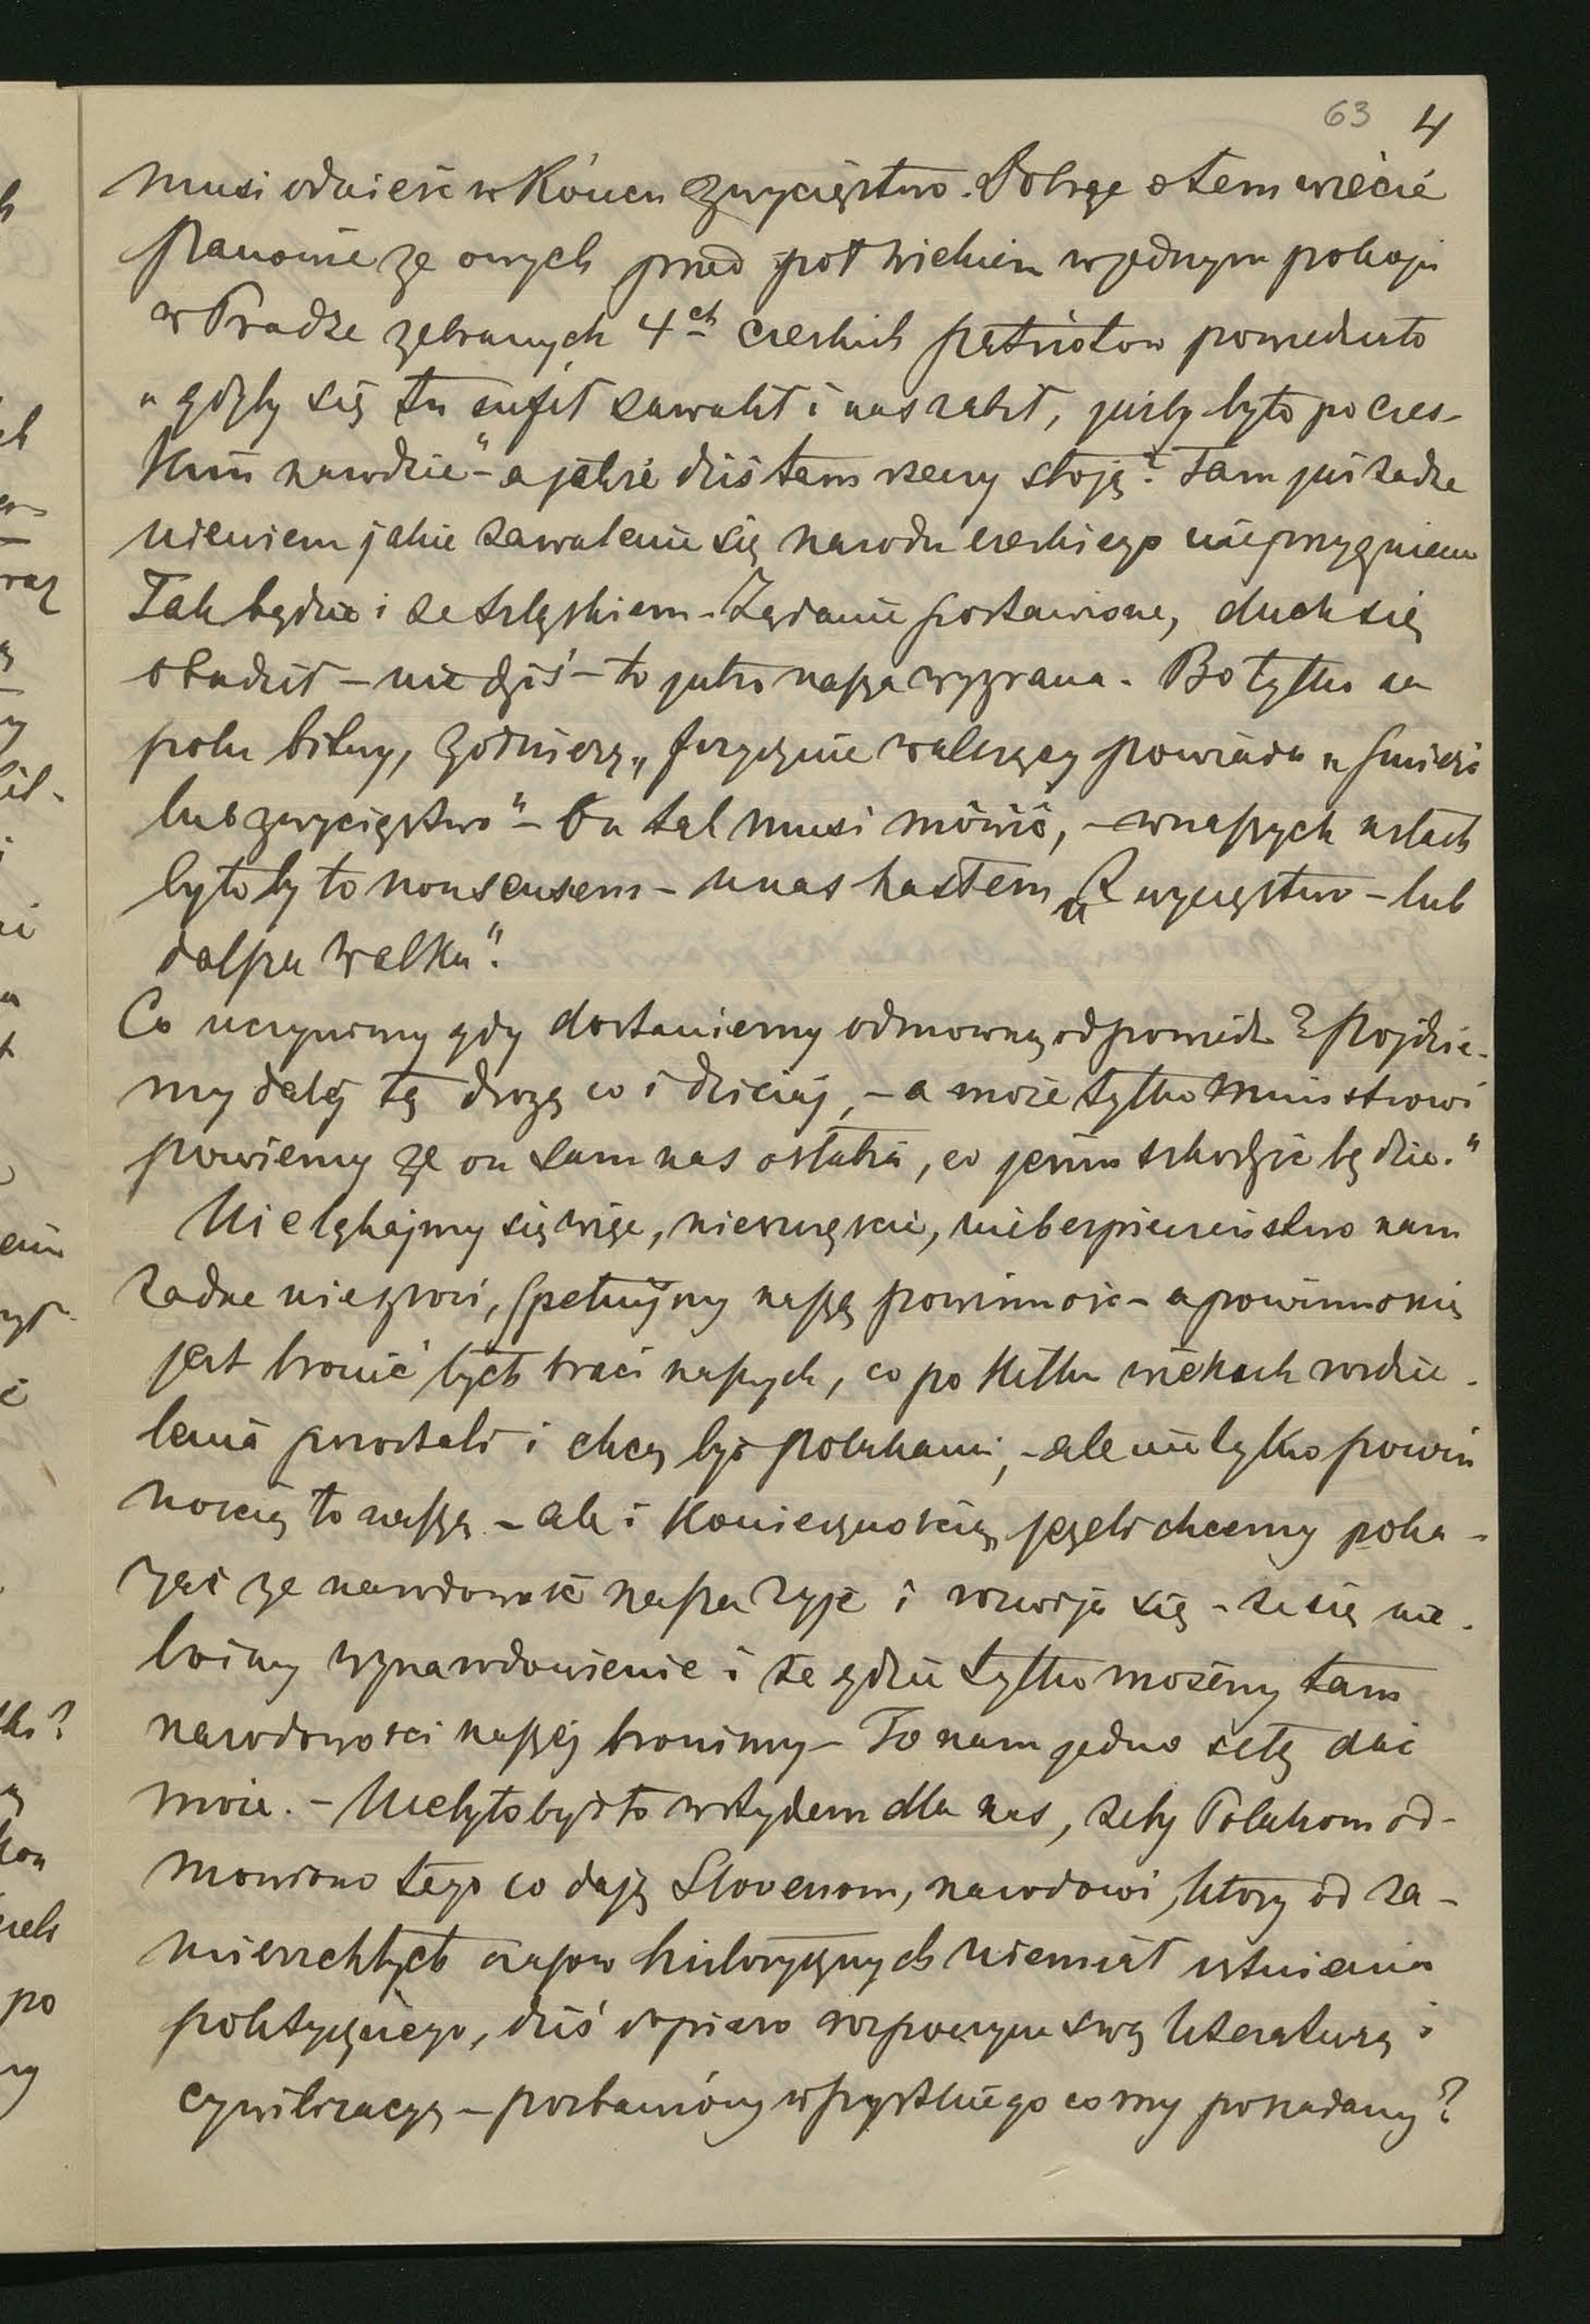 63 4
musi odnieść w Końcu zwycięstwo. Dobrze o tem wiecie
Panowie ze owych przed pół wiekiem w jednym pokoju
w Pradze zebranych 4ch czeskich patriotow powiedziało
„gdyby się tu sufit zawalił i nas zabił, jużby było po czes-
kim narodzie" – a jakże dziś tam rzeczy stoją? Tam już żadne
nieniem jakie zawalenie się narodu czeskiego nie
Tak będzie i ze Szląskiem – Żądanie postawione, duch się
obudził – nie dziś – to jutro nasza wygrana. Bo tylko na
polu bitwy, żołnierz „fizycznie walczący powiada „śmierć
lub zwycięstwo" – On tak musi mówić, – w naszych ustach
byłoby to nonsensem – u nas hasłem „Zwycięstwo – lub
dalsza walka".
Co uczynimy gdy dostaniemy odmowną odpowiedź? Pójdzie-
my daléj tą drogą co i dzisiaj, – a może tylko ministrowi
powiemy ze on sam nas osłabia, co jemu szkodzić będzie."
Nie lękajmy się więc, nieszczęście, niebezpieczeństwo nam
żadne niegrozi, spełnijmy naszą powinność – a powinnością
jest bronić tych braci naszych, co po kilku wiekach rozdzie-
lenia pozostali i chcą być polakami, – ale nietylko powin
nością to naszą – ale i Koniecznością, jezeli chcemy poka-
zać ze narodowość nasza żyje i rozwija się – że się nie
boimy wynarodowienie i że gdzie tylko możemy tam
narodowości naszéj bronimy – To nam jedno siłę dać
może. – Nie byłobyż to wstydem dla nas, żeby Polakom od-
mówiono tego co dają Slovenom, narodowi, ktory od za-
mierzchłych czasow historycznych niemiał istnienia
politycznego, dziś dopiero rozpoczyna swą literaturę i
cywilizacyę – pozbawiony wszystkiego co my posiadamy?